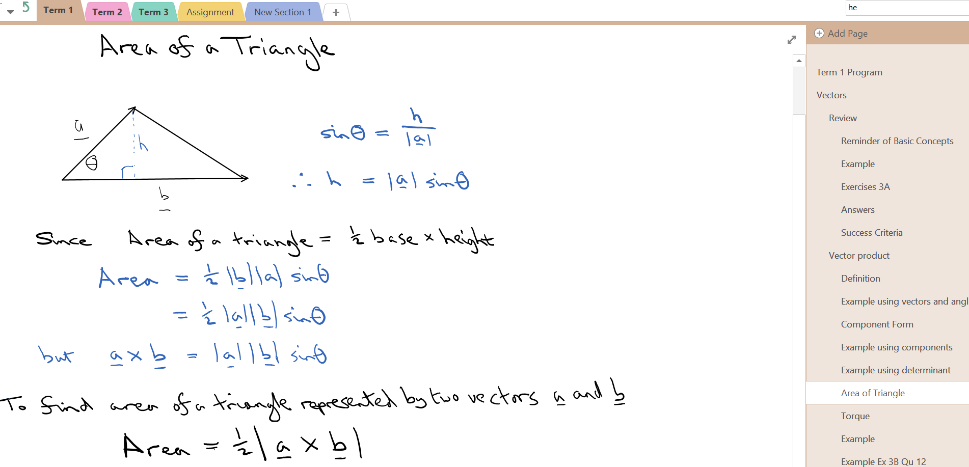 5 Term 1 Term 2 Term 3 Assignment New Section 1 +
he
Area of a Triangle
a
h
θ
b
sinθ = h / |a|
∴ h = |a| sinθ
Since Area of a triangle = ½ base × height
Area = ½ |b||a| sinθ
= ½ |a||b| sinθ
but a × b = |a||b| sinθ
To find area of a triangle represented by two vectors a and b
Area = ½ |a × b|
Add Page
Term 1 Program
Vectors
Review
Reminder of Basic Concepts
Example
Exercises 3A
Answers
Success Criteria
Vector product
Definition
Example using vectors and angl
Component Form
Example using components
Example using determinant
Area of Triangle
Torque
Example
Example Ex 3B Qu 12